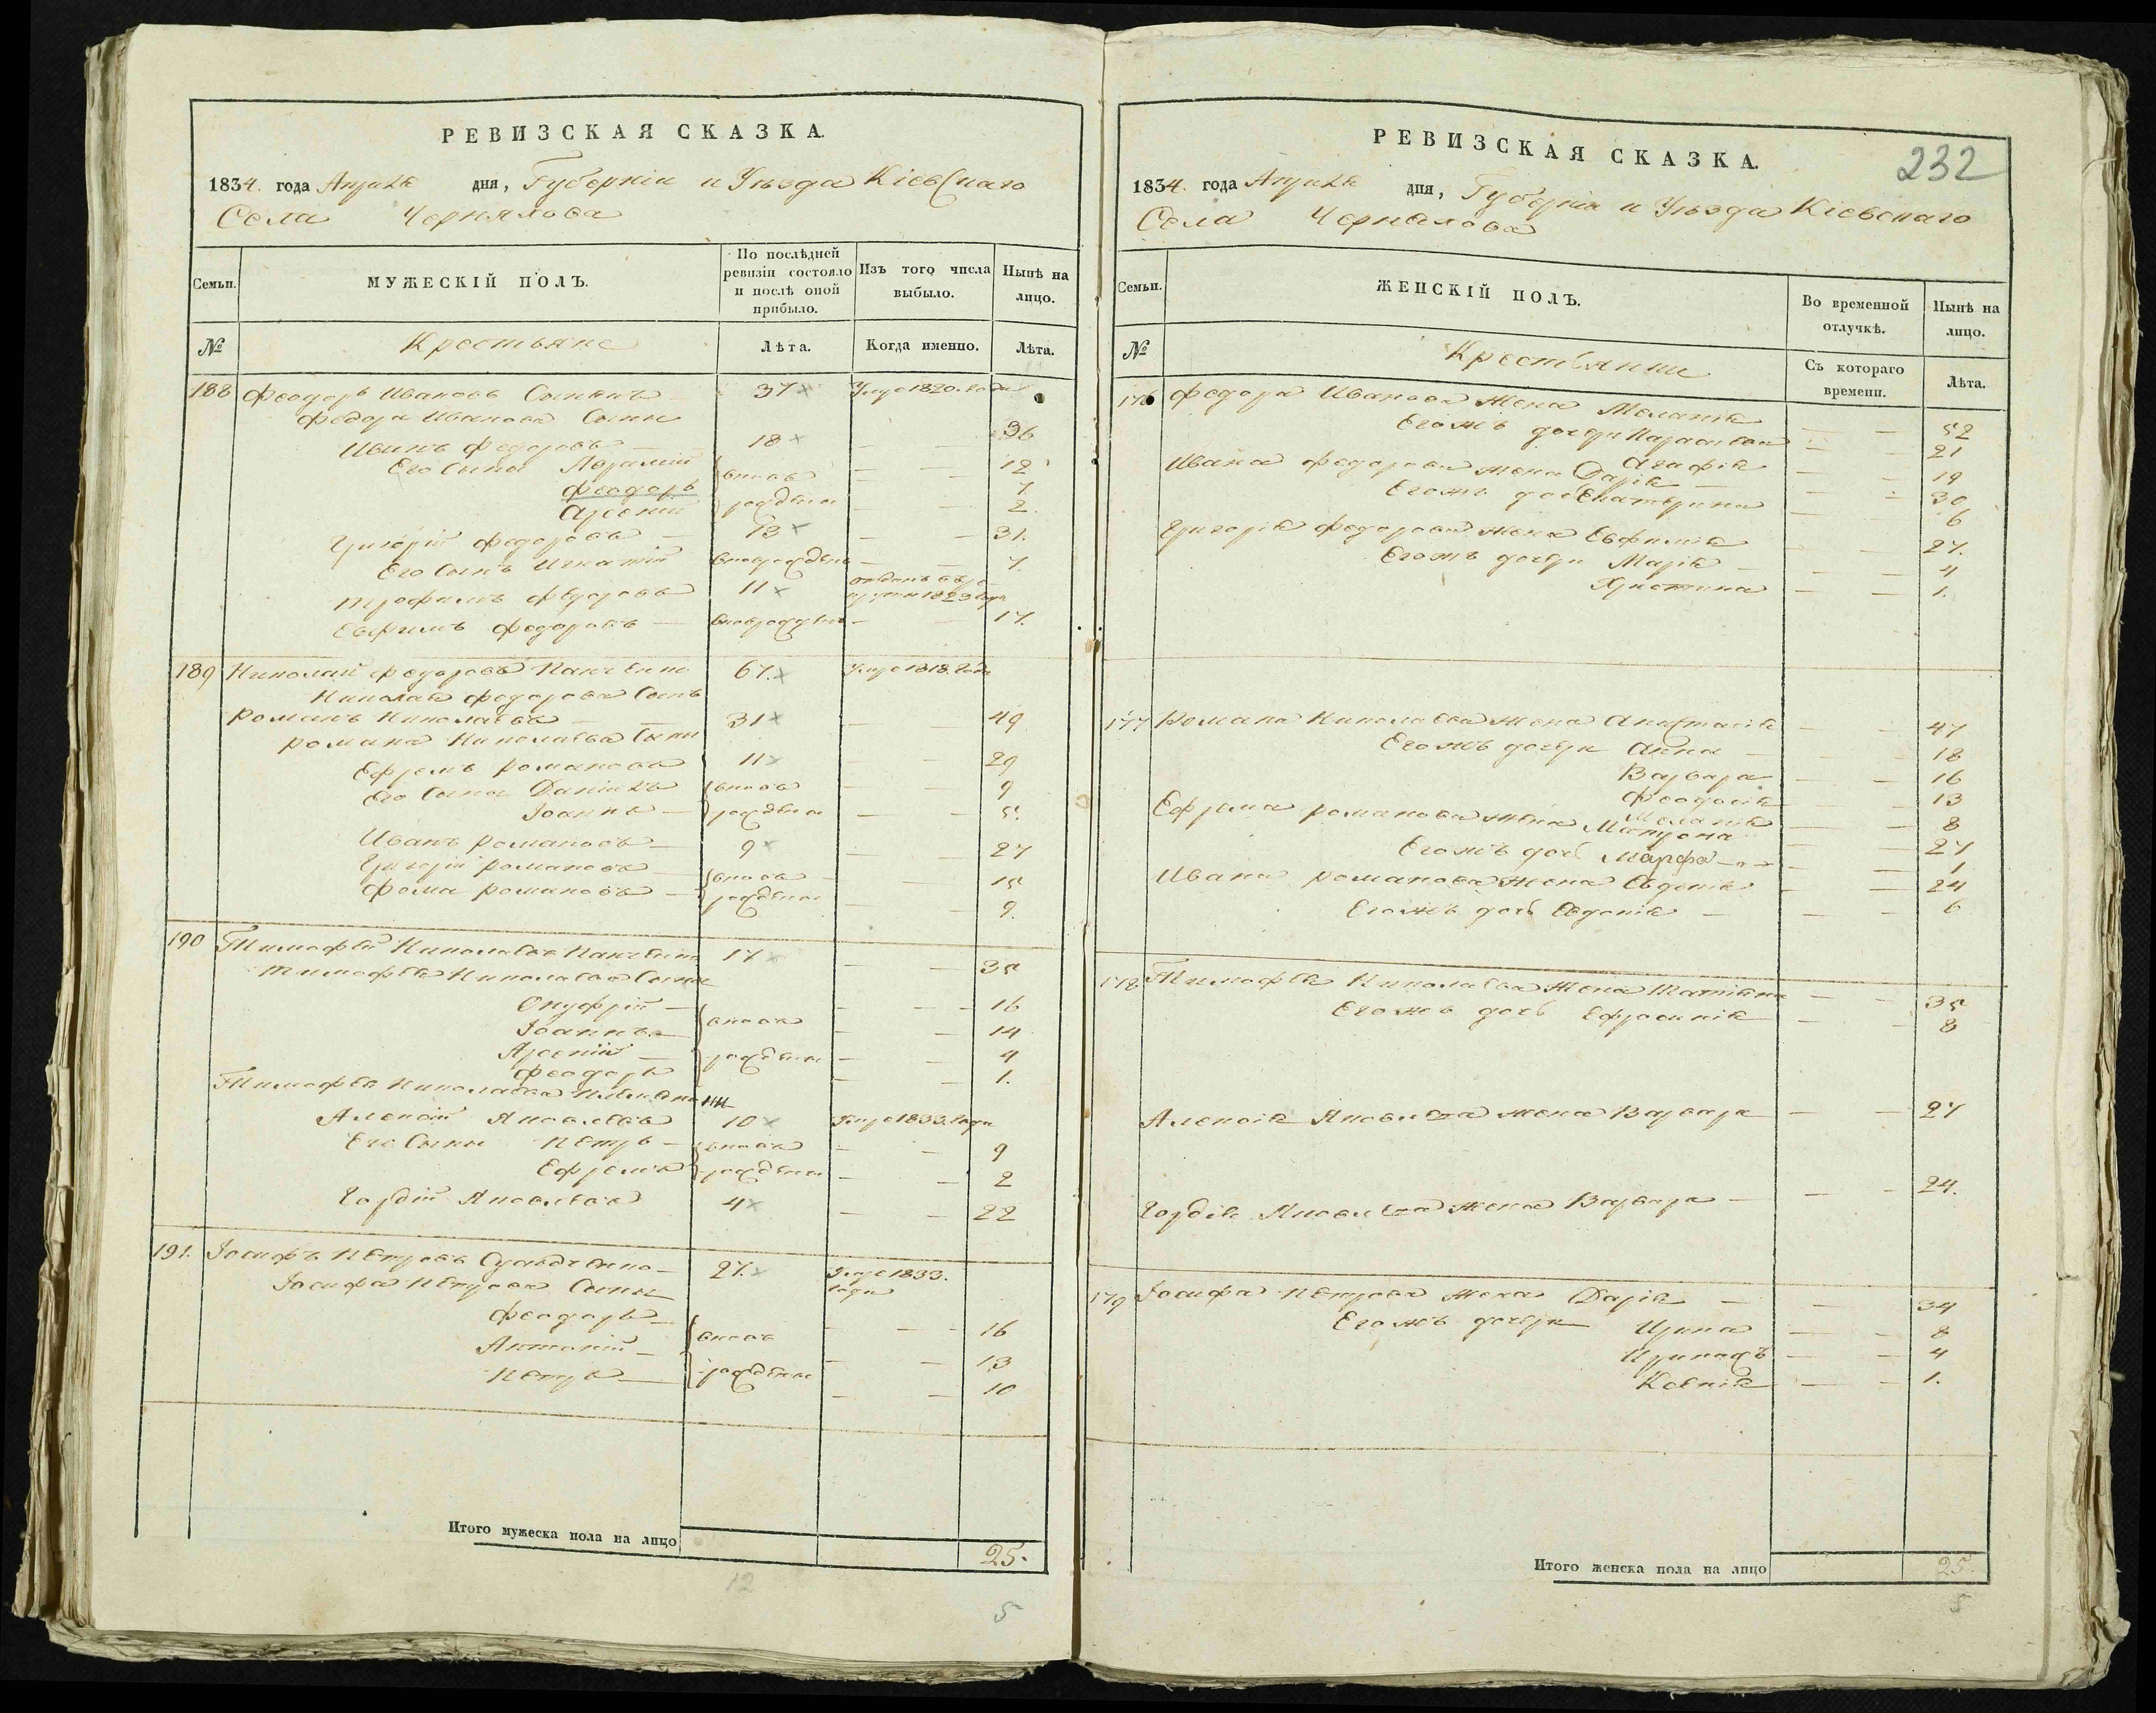 РЕВИЗСКАЯ СКАЗКА.
1834. года Апреля дня, Губерніи и Уѣзда Кіевскаго
Села Чернялова
Семьи.
МУЖЕСКІЙ ПОЛЪ.
По послѣдней ревизіи состояло и послѣ оной прибыло.
Изъ того числа выбыло.
Нынѣ на лицо.
№
Крестьяне
Лѣта.
Когда именно.
Лѣта.
188 Феодоръ Ивановъ 37 Умре 1820. года
Федора Иванова Сыны
Иванъ Федоровъ — 18 — — 36
Его Сыны — — 12
Феодоръ вновь 7
Арсеній рождены — — 2
Григорій Федоровъ — 13 — — 31.
Его Сынъ Игнатій вноврожденъ — — 7.
Трофимъ Федоровъ 11 отданъ въ рекруты 1829 года
Евфимъ Федоровъ — вноврожденъ — — 17.
189 Николай Федоровъ 67. Умре 1818. года
Николая Федорова Сынъ
Романъ Николаевъ — 31 — — 49
Романа Николаева Сыны
Ефремъ Романовъ 11 — — 29
Его Сыны Даніилъ вновь — — 9
Іоаннъ — рождены — — 5.
Иванъ Романовъ — 9 — — 27
Григорій Романовъ — вновь — — 15
Фома Романовъ — рождены — — 9.
190 Тимофѣй Николаевъ 17 — — 35
Тимофѣя Николаева Сыны
Онуфрій — — — 16
Іоаннъ — вновь — — 14
Арсеній — рождены — — 4
Феодоръ — — 1.
Тимофѣя Николаева племянники
Алексій Яковлевъ 10 Умре 1833. года
Его Сыны Петръ — вновь — — 9
Ефремъ рождены — — 2
Гордій Яковлевъ 4 — — 22
191. Іосифъ Петровъ 27. Умре 1833. года
Іосифа Петрова Сыны
Феодоръ — — — 16
Антоній — вновь — — 13
Петръ — рождены — — 10
Итого мужеска пола на лицо 25.
12
5
РЕВИЗСКАЯ СКАЗКА.
232
1834. года Апреля дня, Губерніи и Уѣзда Кіевскаго
Села Чернялова
Семьи.
ЖЕНСКІЙ ПОЛЪ.
Во временной отлучкѣ.
Нынѣ на лицо.
№
Крестьянки
Съ котораго времени.
Лѣта.
176 Федора Иванова Жена Меланія — — 52
Егожъ дочери — — 21
Агафія — — 19
Ивана Федорова жена Дарія — — — 30
Егожъ дочь Екатерина — 6
Григорія Федорова жена Евфимія — — 27.
Егожъ дочери Марія — — — 4
Христина — — 1.
177 Романа Николаева жена Анастасія — — 47
Егожъ дочери Анна — — — 18
Варвара — — 16
Феодосія — — 13
Меланія — — 8
Ефрема Романова жена Матрона — — 27
Егожъ дочь Марфа — — — 1
Ивана Романова жена Евдокія — — 24
Егожъ дочь Евдокія — — — 6
178 Тимофѣя Николаева Жена Татіана — — 35
Егожъ дочь Ефросинія — — 8
Алексія Яковлева жена Варвара — — 27
Гордія Яковлева жена Варвара — — — 24.
179 Іосифа Петрова жена Дарія — — 34
Егожъ дочери Ирина — — 8
— — 4
Ксенія — — 1.
Итого женска пола на лицо 25.
5